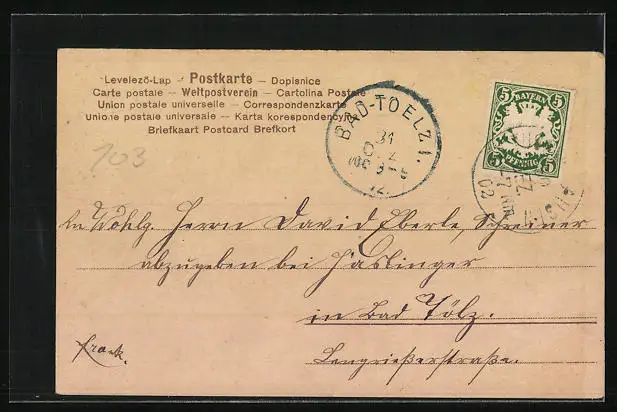 Levelező-Lap – Postkarte – Dopisnice
Carte postale – Weltpostverein – Cartolina Postale
Union postale universelle – Correspondenzkarte
Unione postale universale – Karta korespondencyjna
Briefkaart Postcard Brefkort
103
BAD-TOELZ I.
31
12.
BAYERN
5 5
5 PFENNIG 5
7 NM
02
An Wohlg. Herrn David Eberle, Schreiner
abzugeben bei Haslinger
in Bad Tölz.
Frank.
Lengrießerstraße.